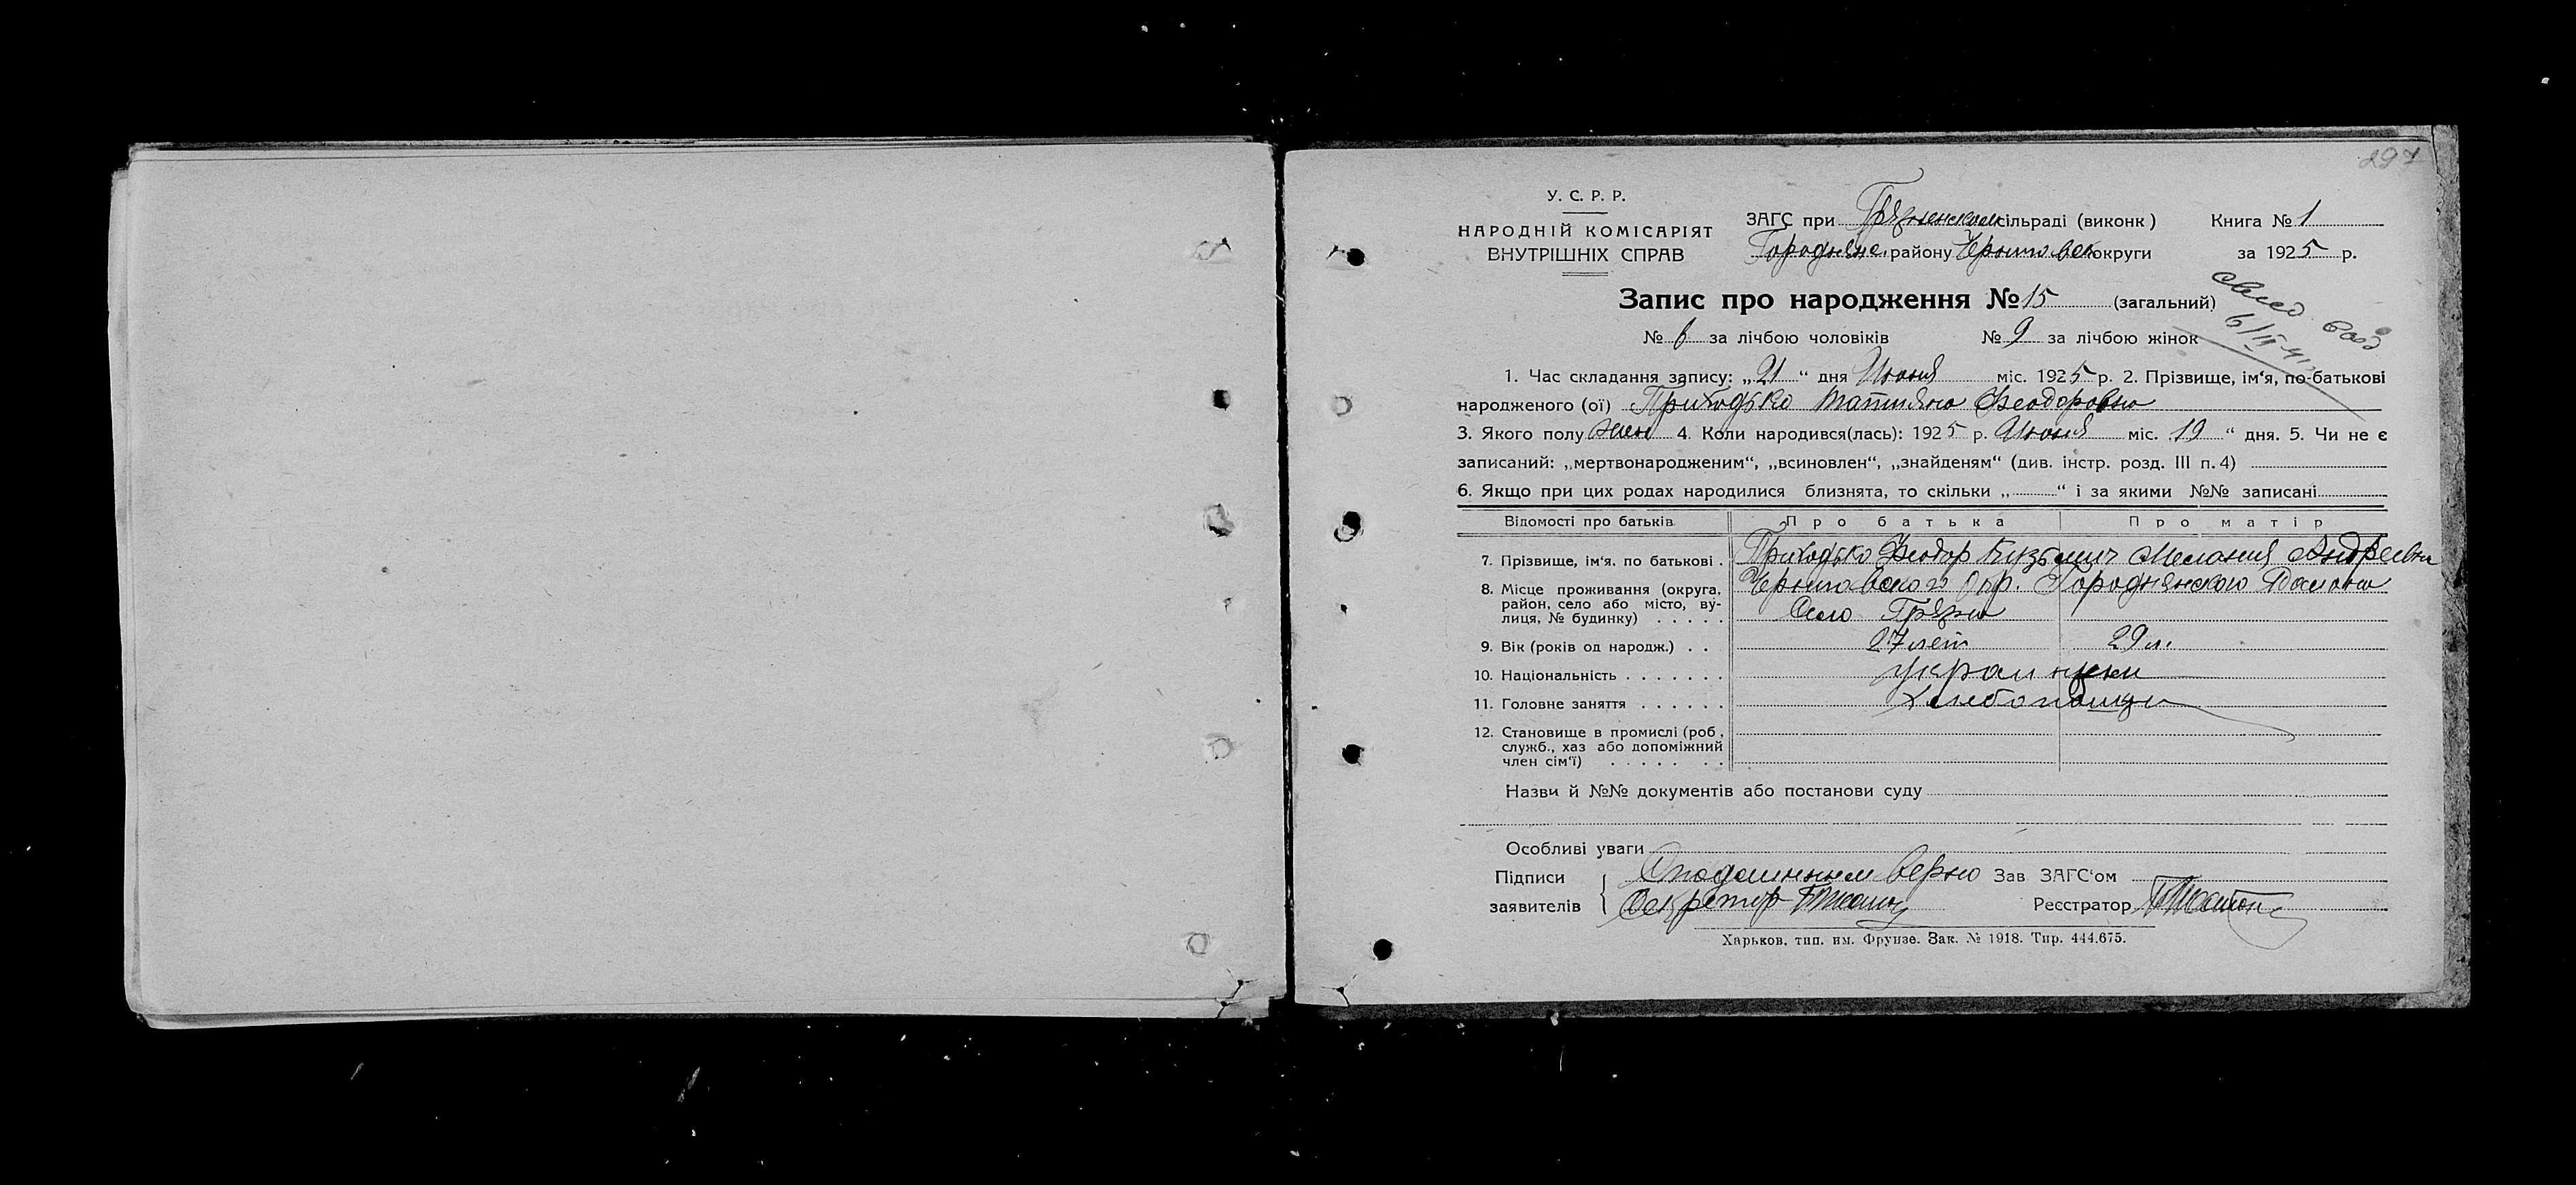 297
У. С. Р. Р.
НАРОДНІЙ КОМІСАРІЯТ
ВНУТРІШНІХ СПРАВ
ЗАГС при Грязненском сільраді (виконк) Книга № 1
Городнянс. району Чернигов округи за 1925 р.
Запис про народження № 15 (загальний)
6/II-41
№ 6 за лічбою чоловіків № 9 за лічбою жінок
1. Час складання запису: „21“ дня Июня міс. 1925 р. 2. Прізвище, ім‘я, по-батькові
народженого (ої) Приходько Татияна Феодоровна
3. Якого полу жен 4. Коли народився(лась): 1925 р. Июня міс. 19 “ дня. 5. Чи не є
записаний: „мертвонародженим“, „всиновлен“, „знайденям“ (див. інстр. розд. III п. 4)
6. Якщо при цих родах народилися близнята, то скільки „ “ і за якими №№ записані
Відомості про батьків Про батька Про матір
7. Прізвище, ім‘я, по батькові . Приходько Феодор Кузьмич Мелания Андреевна
8. Місце проживання (округа, район, село або місто, вулиця, № будинку) . . . . . Черниговского Окр. Городнянского Района
Село Грязна
9. Вік (років од народж.) . . 27 лет 29 л.
10. Національність . . . . . . . украинцы
11. Головне заняття . . . . . . Хлебопашцы
12. Становище в промислі (роб., служб., хаз або допоміжний член сім‘ї) . . . . . . .
Назви й №№ документів або постанови суду
Особливі уваги
Підписи заявителів { С подлинным верно Зав ЗАГС‘ом
Секретар Реєстратор
Харьков, тип. им. Фрунзе. Зак. № 1918. Тир. 444.675.